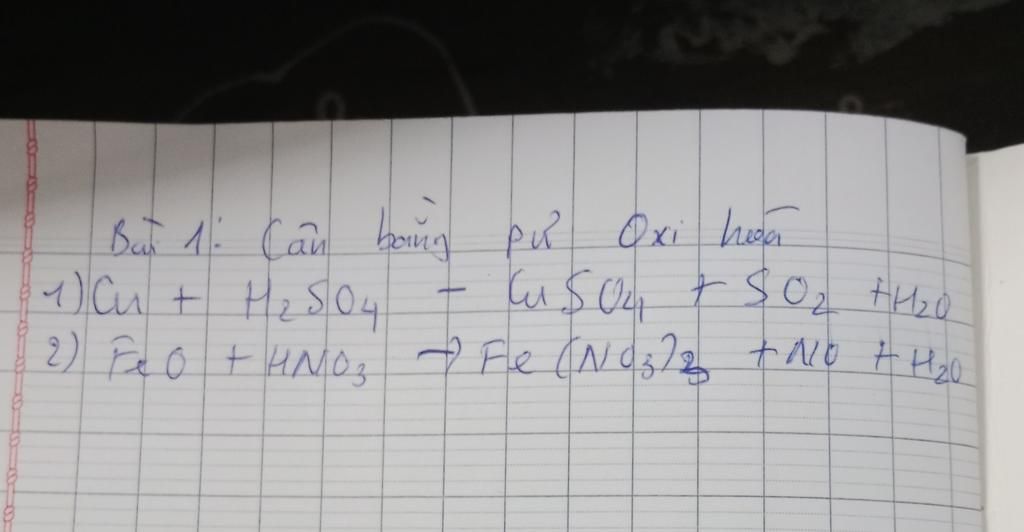 Bài 1: Cân bằng pư Oxi hoá
1) Cu + H2SO4 - CuSO4 + SO2 + H2O
2) FeO + HNO3 → Fe(NO3)3 + NO + H2O